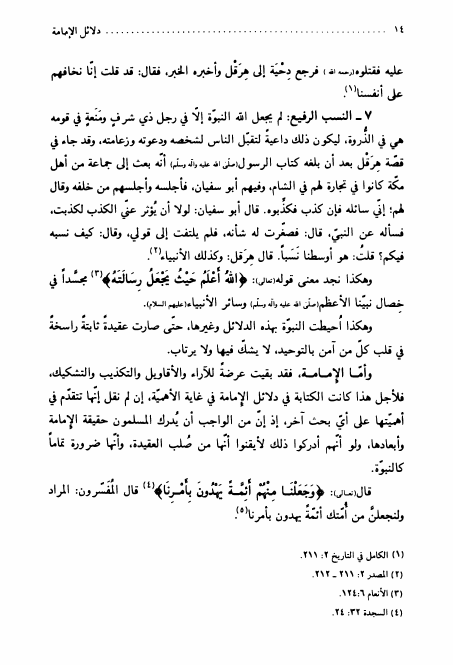 ١٤ ........................................ دلائل الإمامة
عليه فقتلوه(رحمه الله) فرجع دِحْيَة إلى هِرَقْل وأخبره الخبر، فقال: قد قلت إنّا نخافهم
على أنفسنا(١).
٧ ـ النسب الرفيع: لم يجعل الله النبوّة إلّا في رجل ذي شرفٍ ومَنَعةٍ في قومه
هي في الذُّروة، ليكون ذلك داعيةً لتقبّل الناس لشخصه ودعوته وزعامته، وقد جاء في
قصّة هِرَقْل بعد أن بلغه كتاب الرسول(صلّى الله عليه وآله وسلّم) أنّه بعث إلى جماعة من أهل
مكّة كانوا في تجارة لهم في الشام، وفيهم أبو سفيان، فأجلسه وأجلسهم من خلفه وقال
لهم: إنّي سائله فإن كذب فكذّبوه. قال أبو سفيان: لولا أن يُؤثر عنّي الكذب لكذبت،
فسأله عن النبيّ، قال: فصغّرت له شأنه، فلم يلتفت إلى قولي، وقال: كيف نسبه
فيكم؟ قلتُ: هو أوسطنا نَسَباً. قال هِرَقل: وكذلك الأنبياء(٢).
وهكذا نجد معنى قوله(تعالى): ﴿اللهُ أَعْلَمُ حَيْثُ يَجْعَلُ رِسَالَتَهُ﴾(٣) مجسَّداً في
خِصال نبيّنا الأعظم(صلّى الله عليه وآله وسلّم) وسائر الأنبياء(عليهم السلام).
وهكذا أُحيطت النبوّة بهذه الدلائل وغيرها، حتّى صارت عقيدةً ثابتةً راسخة
في قلب كلّ من آمن بالتوحيد، لا يشكّ فيها ولا يرتاب.
وأمّا الإمـامـة، فقد بقيت عرضةً للآراء والأقاويل والتكذيب والتشكيك،
فلأجل هذا كانت الكتابة في دلائل الإمامة في غاية الأهميّة، إن لم نقل إنّها تتقدّم في
أهميّتها على أيّ بحث آخر، إذ إنّ من الواجب أن يُدرك المسلمون حقيقة الإمامة
وأبعادها، ولو أنّهم أدركوا ذلك لأيقنوا أنّها من صُلب العقيدة، وأنّها ضرورة تماماً
كالنبوّة.
قال(تعالى): ﴿وَجَعَلْنَـا مِنْهُمْ أَئِمَّـةً يَهْدُونَ بِأَمْـرِنَا﴾(٤) قال المُفَسّرون: المراد
ولنجعلنّ من أُمّتك أئمّةً يهدون بأمرنا(٥).
(١) الكامل في التاريخ ٢: ٢١١.
(٢) المصدر ٢: ٢١١ ـ ٢١٢.
(٣) الأنعام ٦: ١٢٤.
(٤) السجدة ٣٢: ٢٤.